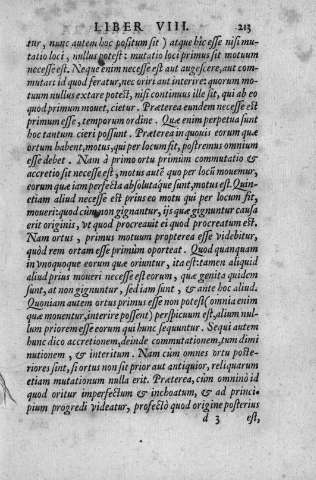 LIBER VIII. 213
tur, nunc autem hoc positum sit) atque hic esse nisi mu-
tatio loci, nullus potest: mutatio loci primus sit motuum
necesse est. Neque enim necesse est aut augescere, aut com-
mutari id quod feratur, nec oriri aut interire: quorum mo-
tuum nullus extare potest, nisi continuus ille sit, qui ab eo
quod primum mouet, cietur. Præterea eundem necesse est
primum esse, temporum ordine. Quæ enim perpetua sunt
hoc tantum cieri possunt. Præterea in quouis eorum quæ
ortum habent, motus, qui per locum fit, postremus omnium
esse debet. Nam à primo ortu primùm commutatio &
accretio sit necesse est, motus autē quo per locū mouemur,
eorum quæ iam perfecta absolutaq́ue sunt, motus est. Quin-
etiam aliud necesse est prius eo motu qui per locum fit,
mouerit: quod cùm non gignantur, ijs quæ gignuntur causa
erit originis, vt quod procreauit ei quod procreatum est.
Nam ortus, primus motuum propterea esse videbitur,
quòd rem ortam esse primùm oporteat. Quod quanquam
in vnoquoque eorum quæ oriuntur, ita est: tamen aliquid
aliud prius moueri necesse est eorum, quæ genita quidem
sunt, at non gignuntur, sed iam sunt, & ante hoc aliud.
Quoniam autem ortus primus esse non potest (omnia enim
quæ mouentur, interire possent) perspicuum est, alium nul-
lum priorem esse eorum qui hunc sequuntur. Sequi autem
hunc dico accretionem, deinde commutationem, tum dimi
nutionem, & interitum. Nam cùm omnes ortu poste-
riores sint, si ortus non sit prior aut antiquior, reliquarum
etiam mutationum nulla erit. Præterea, cùm omninò id
quod oritur imperfectum & inchoatum, & ad princi-
pium progredi videatur, profectò quod origine posterius
d 3 est,